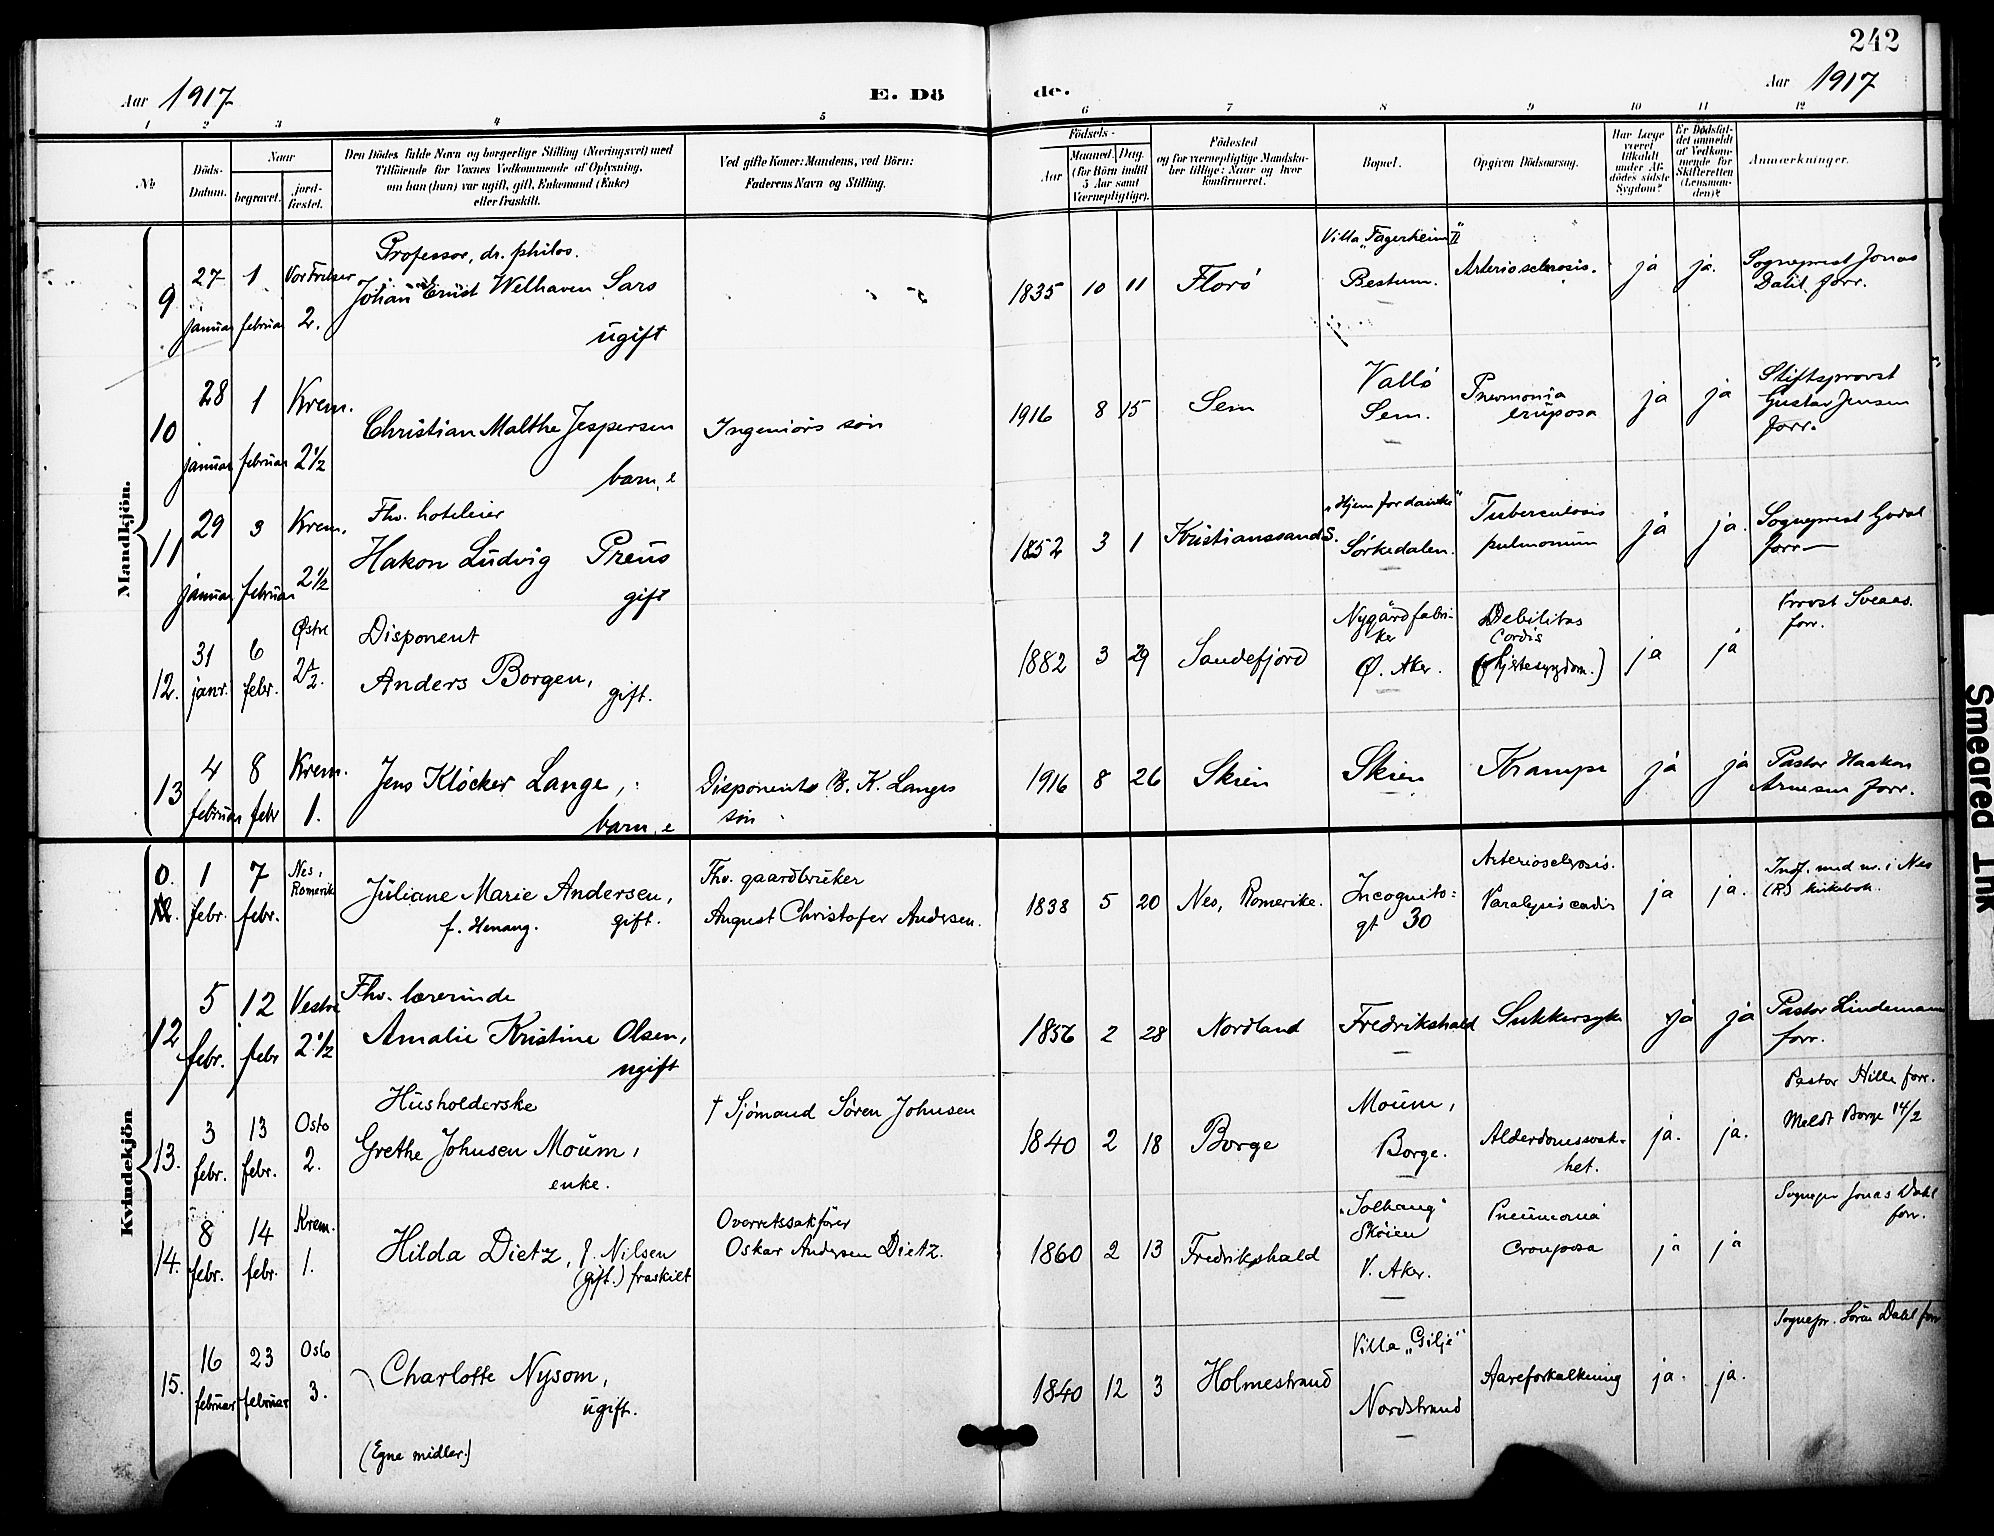 242
Aar 1917
E. Dö
de.
Aar 1917
1 2 3 4 5 6 7 8 9 10 11 12
№
Döds-
Datum.
Naar
begravet.
jord-
fæstet.
Den Dödes fulde Navn og borgerlige Stilling (Næringsvei) med
Tilföiende for Voxnes Vedkommende af Oplysning,
om han (hun) var ugift, gift, Enkemand (Enke)
eller fraskilt.
Ved gifte Koner: Mandens, ved Börn:
Faderens Navn og Stilling.
Födsels-
Aar
Maaned. Dag.
(for Börn indtil
5 Aar samt
Værnepligtige).
Födested
og for værnepligtige Mandska-
ber tillige: Naar og hvor
konfirmeret.
Bopæl.
Opgiven Dödsaarsag.
Har Læge
været
tilkaldt
under Af-
dödes sidste
Sygdom?
Er Dödsfal-
det anmeldt
af Vedkom-
mende for
Skifteretten
(Lensman-
den)?
Anmærkninger.
Mandkjön.
9
27
januar
1
februar
Vor Frelser
2.
Professor, dr. philos.
Johan Ernst Welhaven Sars
ugift
1835 10 11
Florö
Villa "Fagerheim II"
Bestum.
Arteriosclerosis.
ja
ja.
Sogneprest Jonas
Dahl. forr.
10
28
januar
1
februar
Krem.
2 1/2
Christian Malthe Jespersen
barn, e
Ingeniörs sön
1916 8 15
Sem
Vallö
Sem.
Pnevmonia
cruposa
ja
ja
Stiftsprovst
Gustav Jensen
forr.
11
29
januar
3
februar
Krem.
2 1/2
Fhv. hoteleier
Hakon Ludvig Preus
gift
1852 3 1
Kristianssand S.
"Hjem for danske"
Sörkedalen.
Tuberculosis
pulmonum
ja
ja.
Sogneprest Godal
forr
12.
31
janr.
6
febr.
Østre
2 1/2.
Disponent
Anders Borgen,
gift.
1882 3 29
Sandefjord
Nygård fabri-
ker
Ø. Aker.
Debilitas
cordis
(Hjertesygdom.)
ja
ja
Provst Sveaas.
forr.
13
4
februar
8
febr
Krem.
1.
Jens Klöcker Lange,
barn, e
Disponents B. K. Langes
sön
1916 8 26
Skien
Skien
Krampe
ja
ja
Pastor Haakon
Arnesen forr.
Kvindekjön
0.
1
febr.
7
febr.
Nes,
Romerike
Juliane Marie Andersen,
f. Henaug.
gift.
Fhv. gaardbruker
August Christofer Andersen.
1838 5 20
Nes, Romerike.
Incognito-
gt 30
Arteriosclerosis.
Paralysis cordis
ja
ja.
Indf. med nr. i Nes
(R) kirkebok.
12
5
febr.
12
febr
Vestre
2 1/2
Fhv. lærerinde
Amalie Kristine Olsen,
ugift
1856 2 28
Nordland
Fredrikshald
Sukkersyke
ja
ja
Pastor Lindemann
forr.
13.
3
febr.
13
febr.
Oslo
2.
Husholderske
Grethe Johnsen Moum,
enke.
† Sjömand Sören Johnsen
1840 2 18
Borge
Moum,
Borge.
Alderdomssvak-
het.
ja.
ja.
Pastor Hille forr.
Meldt Borge 14/2
14.
8
febr.
14
febr.
Krem.
1.
Hilda Dietz, f. Nilsen
(gift.) fraskilt
Overretssakförer
Oskar Andersen Dietz.
1860 2 13
Fredrikshald
"Solhaug"
Sköien
V. Aker.
Pneumonia
crouposa
ja
ja
Sognepr Jonas Dahl
forr.
15.
16
februar
23
februar
Oslo
3.
Charlotte Nysom,
ugift.
(Egne midler)
1840 12 3
Holmestrand
Villa "Gilje"
Nordstrand
Aareforkalkning
ja.
ja.
Sognepr. Sören Dahl forr
Smeared Ink